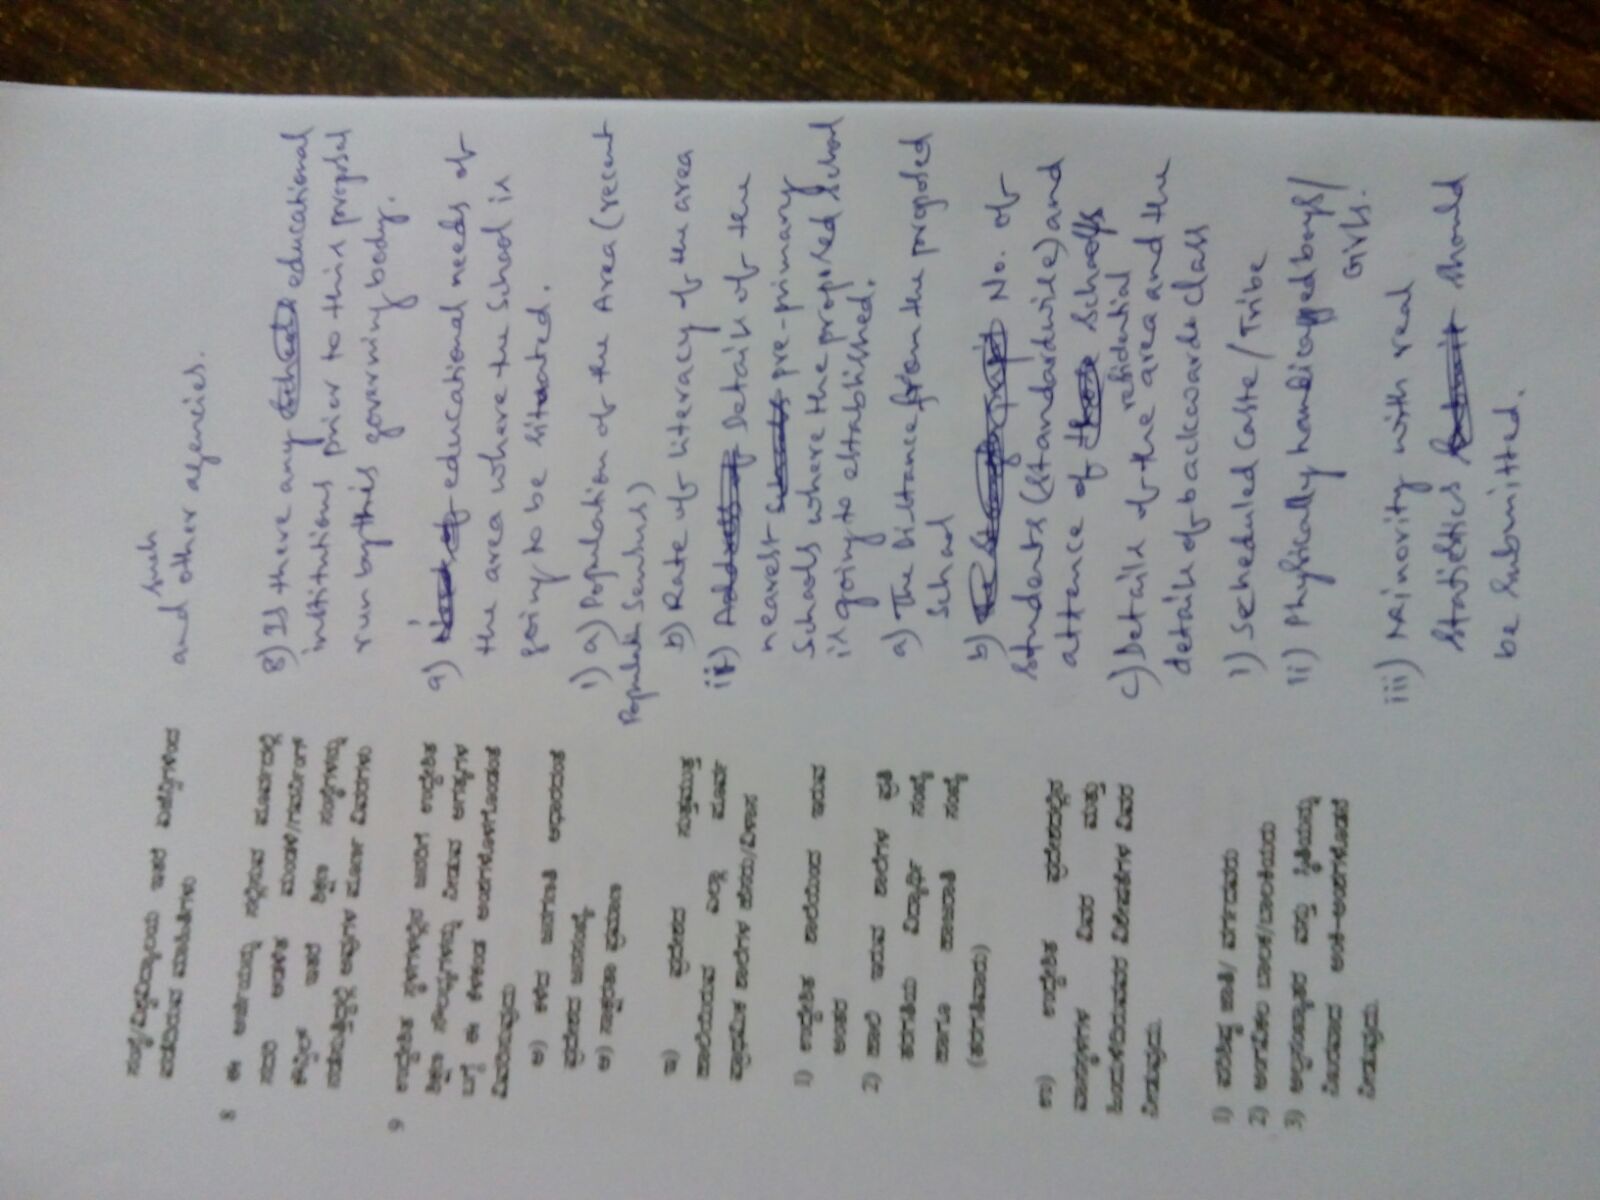 ಸಂಸ್ಥೆ/ವಿಶ್ವವಿದ್ಯಾಲಯ ಇತರೆ ಏಜೆನ್ಸಿಗಳಿಂದ
ಪಡೆದಿರುವ ಮಾಹಿತಿಗಳು
8 ಈ ಅರ್ಜಿಯನ್ನು ಸಲ್ಲಿಸುವ ಪೂರ್ವದಲ್ಲಿ
ಸದರಿ ಆಡಳಿತ ಮಂಡಳಿ/ಗವರ್ನಿಂಗ್
ಕೌನ್ಸಿಲ್ ಇತರೆ ಶಿಕ್ಷಣ ಸಂಸ್ಥೆಗಳನ್ನು
ನಡೆಸುತ್ತಿದ್ದಲ್ಲಿ ಅವುಗಳ ಪೂರ್ಣ ವಿವರಗಳು
9 ಉದ್ದೇಶಿತ ಸ್ಥಳಗಳಲ್ಲಿನ ಜನರಿಗೆ ಉದ್ದೇಶಿತ
ಶಿಕ್ಷಣ ಸೌಲಭ್ಯಗಳನ್ನು ನೀಡುವ ಅಗತ್ಯಗಳ
ಬಗ್ಗೆ ಈ ಕೆಳಕಂಡ ಅಂಶಗಳೊಳಗೊಂಡಂತೆ
ವಿವರಿಸುವುದು
ಅ) ಕಳೆದ ಜನಗಣತಿ ಆಧಾರದಂತೆ
ಪ್ರದೇಶದ ಜನಸಂಖ್ಯೆ
ಆ) ಸಾಕ್ಷರತಾ ಪ್ರಮಾಣ
ಇ) ಪ್ರದೇಶದ ಸುತ್ತಮುತ್ತ
ಹಾಲಿಯಿರುವ ಎಲ್ಲಾ ಪೂರ್ವ
ಪ್ರಾಥಮಿಕ ಶಾಲೆಗಳ ಹೆಸರು/ವಿಳಾಸ
1) ಉದ್ದೇಶಿತ ಶಾಲೆಯಿಂದ ಇರುವ
ಅಂತರ
2) ಹಾಲಿ ಇರುವ ಶಾಲೆಗಳ ಪ್ರತಿ
ತರಗತಿಯ ವಿದ್ಯಾರ್ಥಿ ಸಂಖ್ಯೆ
ಹಾಗೂ ಹಾಜರಾತಿ ಸಂಖ್ಯೆ
(ತರಗತಿವಾರು)
ಉ) ಉದ್ದೇಶಿತ ಪ್ರದೇಶದಲ್ಲಿನ
ವಾಸಸ್ಥಳಗಳ ವಿವರ ಮತ್ತು
ಹಿಂದುಳಿದಿರುವವರ ವಿಶೇಷತೆಗಳ ವಿವರ
ನೀಡುವುದು.
1) ಪರಿಶಿಷ್ಟ ಜಾತಿ/ ವರ್ಗದವರು
2) ಅಂಗವಿಕಲ ಬಾಲಕ/ಬಾಲಕಿಯರು
3) ಅಲ್ಪಸಂಖ್ಯಾತರ ವಸ್ತು ಸ್ಥಿತಿಯನ್ನು
ನಿಖರವಾದ ಅಂಕಿ-ಅಂಶಗಳೊಡನೆ
ನೀಡುವುದು.
such
and other agencies.
8) Is there any schools educational
institutions prior to this proposal
run by this governing body.
9) Need of educational needs of
the area where the School is
going to be situated.
1) a) Population of the Area (recent
Populatn Sensus)
b) Rate of literacy of the area
ii) Address of Details of the
nearest Schools pre-primary
Schools where the proposed School
is going to established.
a) The Distance from the proposed
School
b) No. of
students (standardwise) and
attence of those Schools
residential
c) Details of the area and the
details of backwards class
i) Secheduled Caste / Tribe
ii) Physically handicapped boys/
Girls.
iii) Minority with real
statistics submit should
be submitted.